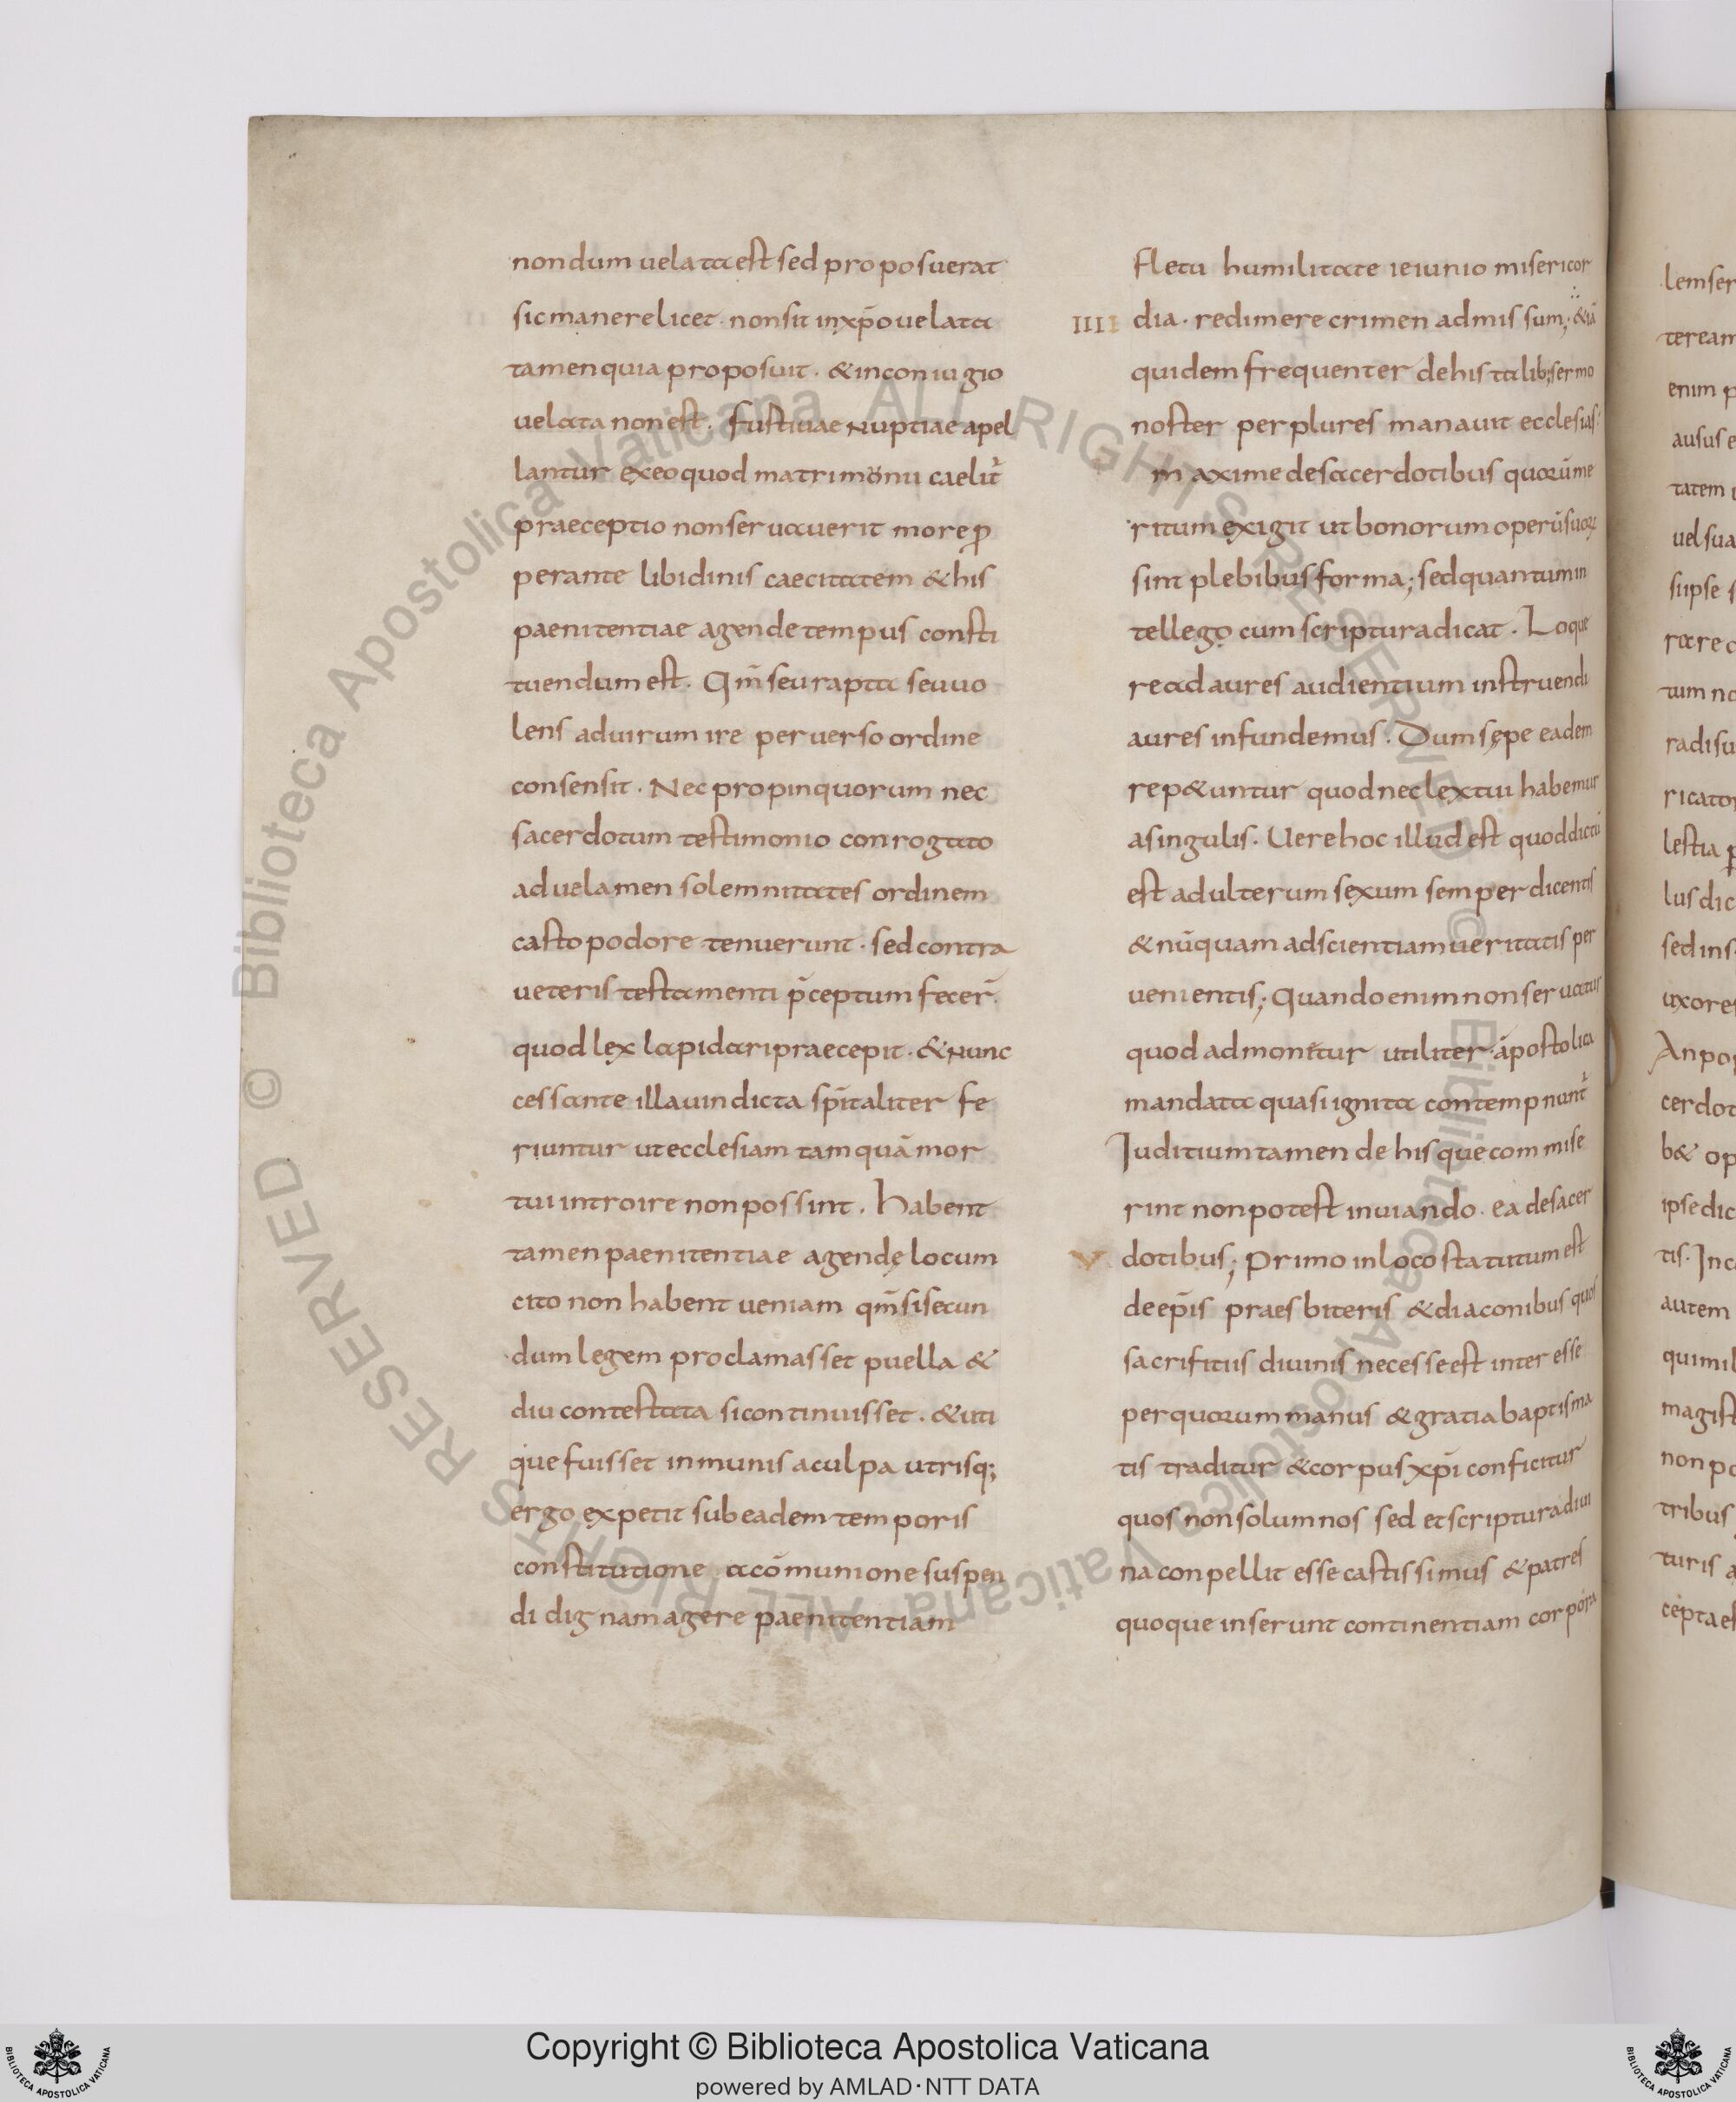 nondum uelata est sed proposuerat
sic manere licet · non sit in xp̄o uelata
tamen quia proposuit · & in coniugio
uelata non est · furtiuae nuptiae apel
lantur ex eo quod matrimonii caelit᷑
praeceptio non seruauerit more p̄
perante libidinis caecitatem & his
paenitentiae agende tempus consti
tuendum est · Qm̄ seu rapta seu uo
lens ad uirum ire peruerso ordine
consensit · Nec propinquorum nec
sacerdotum testimonio conrogato
ad uelamen solemnitates ordinem
casto podore tenuerunt · sed contra
ueteris testamenti p̄ceptum fecer̄ ·
quod lex lapidari praecepit · & nunc
cessante illa uindicta sp̄italiter fe
riuntur ut ecclesiam tamquā mor
tui introire non possint · Habent
tamen paenitentiae agendę locum
cito non habent ueniam qm̄ si secun
dum legem proclamasset puella &
diu contestata si continuisset · & uti
que fuisset inmunis a culpa utrisq;
ergo expetit sub eadem temporis
constitutione a cōmunione suspen
di dignam agere paenitentiam
fletu humilitate ieiunio misericor
IIII dia · redimere crimen admissum; & iā
quidem frequenter de his talib; sermo
noster per plures manauit ecclesias·
maxime de sacerdotibus quorū me
ritum exigit ut bonorum operū suoꝝ
sint plebibus forma; sed quantum in
tellego cum scriptura dicat · Loque
re ad aures audientium instruendi
aures infundemus · Dum sępe eadem
rep&untur quod neclextui habemur
a singulis · Uere hoc illud est quod dictū
est adulterum sexum semper dicentis
& nūquam ad scientiam ueritatis per
uenientis; Quando enim non seruatur
quod admonetur utiliter · apostolica
mandata quasi ignita contempnunt᷑
Iuditium tamen de his que commise
rint non potest inuiando · ea de sacer
V dotibus; Primo in loco statutum est
de ep̄is praesbiteris & diaconibus quos
sacrifitiis diuinis necesse est inter esse
per quorum manus & gratia baptisma
tis traditur & corpus xp̄i conficitur
quos non solum nos sed et scriptura diui
na conpellit esse castissimus & patres
quoque inserunt continentiam corpora
lemser
teream
enim p
ausus e
tatem
uel sua
siipse s
rare c
tum no
radisu
ricator
lestia p
lus dic
sed ins
uxores
An pop
cerdot
b& op
ipse dic
tis · Inc
autem
qui mil
magist
non po
tribus
turis a
cepta es
© Biblioteca Apostolica Vaticana ALL RIGHTS RESERVED © Biblioteca Apostolica Vaticana ALL RIGHTS RESERVED
Copyright © Biblioteca Apostolica Vaticana
powered by AMLAD·NTT DATA
BIBLIOTECA APOSTOLICA VATICANA
BIBLIOTECA APOSTOLICA VATICANA